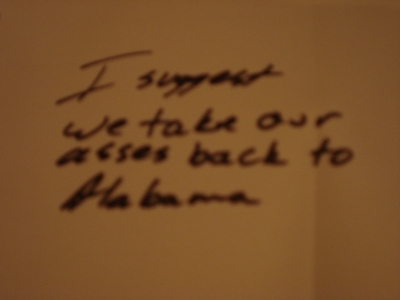 I suggest
we take our
asses back to
Alabama